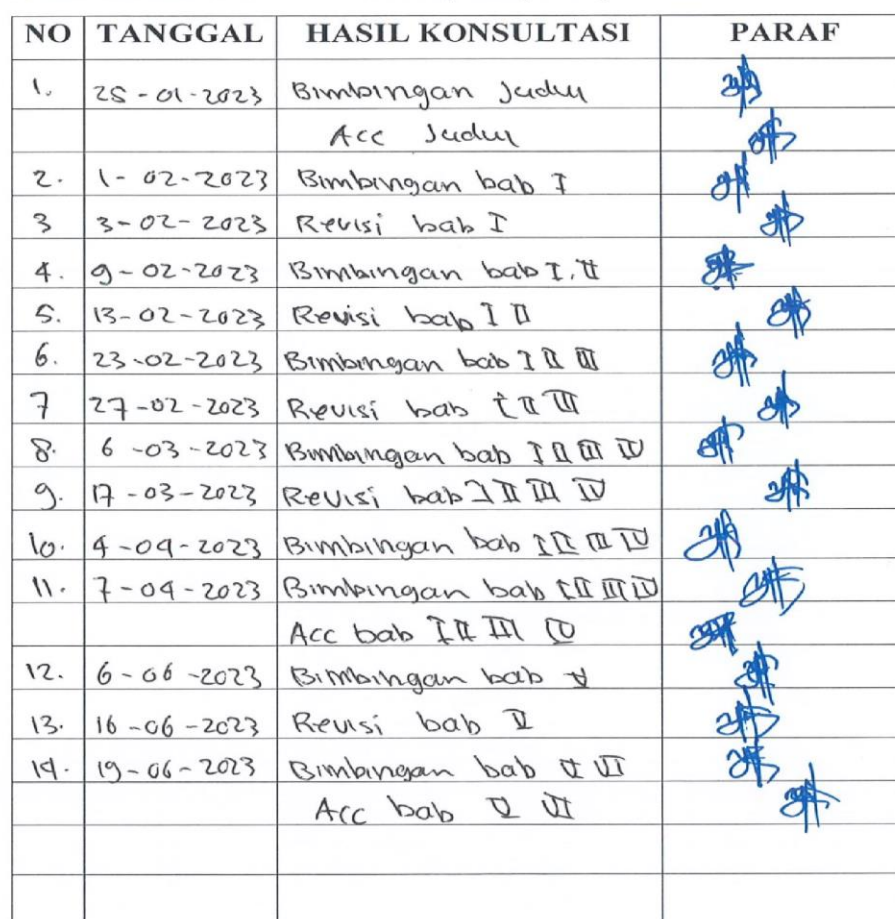 NO TANGGAL HASIL KONSULTASI PARAF
1. 25-01-2023 Bimbingan Judul
Acc Judul
2. 1-02-2023 Bimbingan bab I
3 3-02-2023 Revisi bab I
4. 9-02-2023 Bimbingan bab I, II
5. 13-02-2023 Revisi bab I II
6. 23-02-2023 Bimbingan bab I II III
7 27-02-2023 Revisi bab I II III
8. 6-03-2023 Bimbingan bab I II III IV
9. 17-03-2023 Revisi bab I II III IV
10. 4-04-2023 Bimbingan bab I II III IV
11. 7-04-2023 Bimbingan bab I II III IV
Acc bab I II III IV
12. 6-06-2023 Bimbingan bab V
13. 16-06-2023 Revisi bab V
14. 19-06-2023 Bimbingan bab V VI
Acc bab V VI